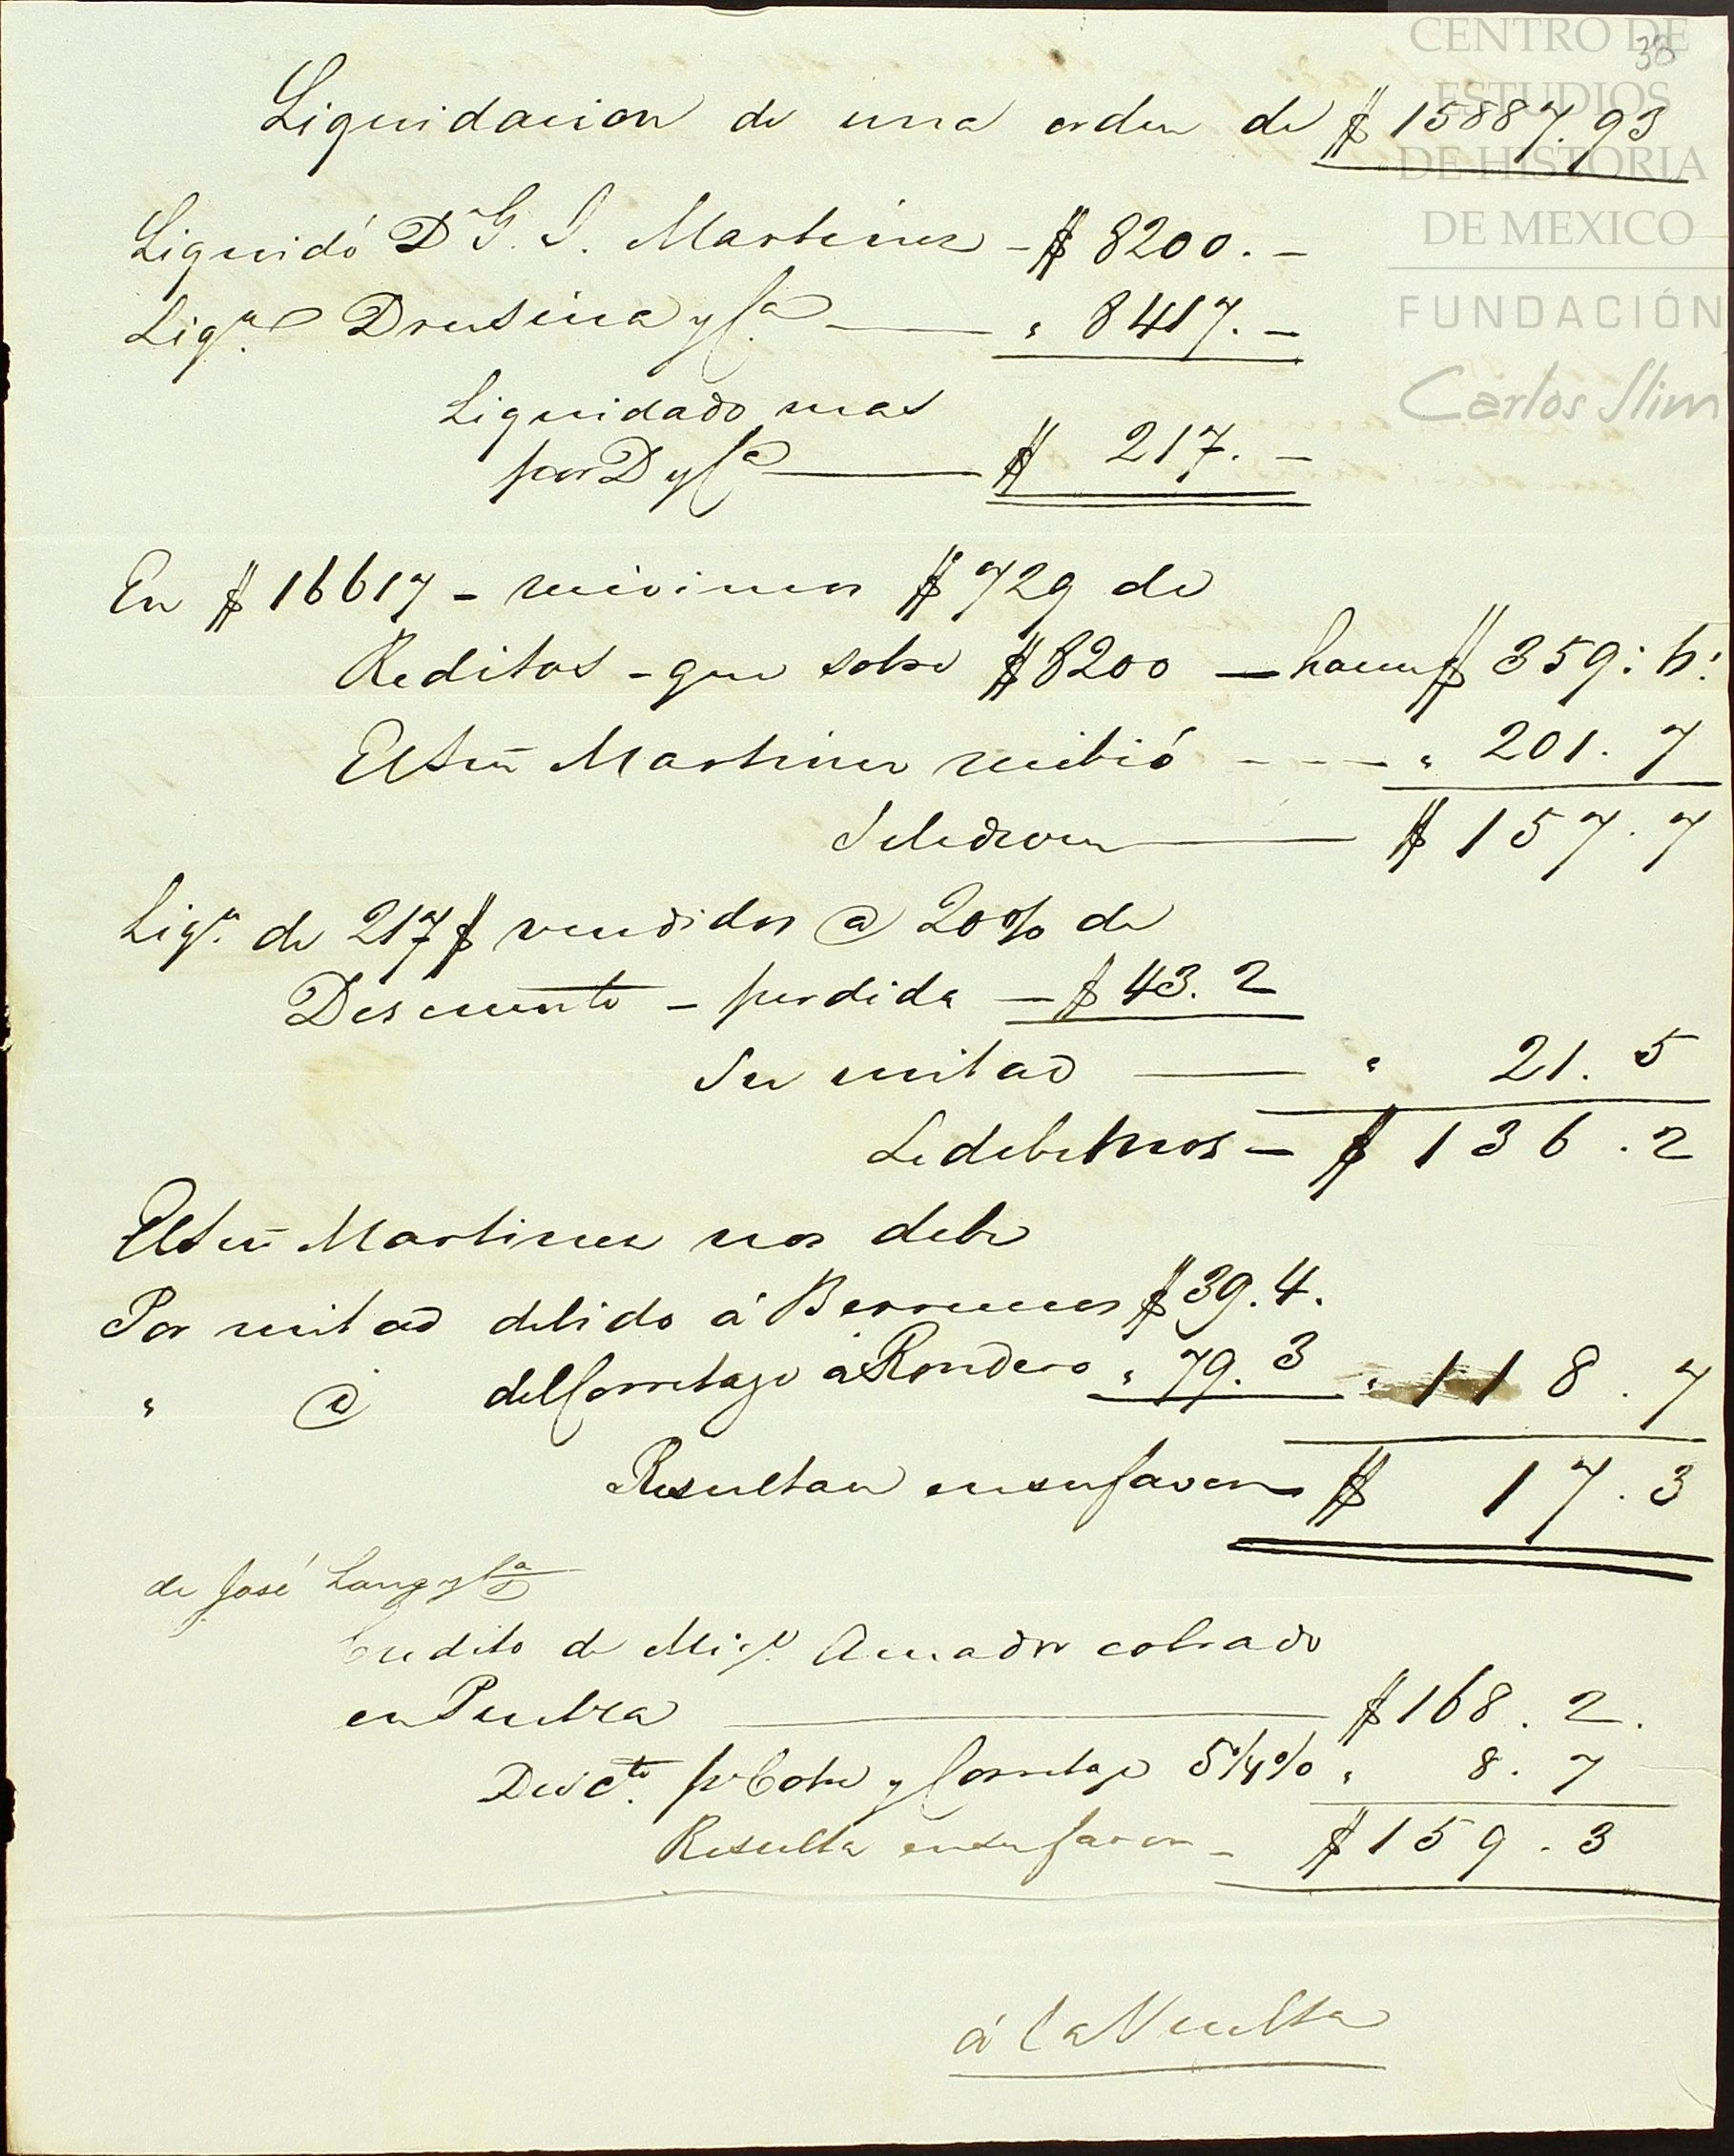 CENTRO DE
ESTUDIOS
DE HISTORIA
DE MEXICO
FUNDACIÓN
Carlos Slim
38
Liquidacion de una orden de $ 15887.93
Liquidó Dn G. S. Martinez - $ 8200. -
Liqn Drusina y Ca — " 8417. -
Liquidado mas
por D y Ca — $ 217. -
En $ 16617 - recivimos $ 729 de
Reditos - que sobre $ 8200 — hacen $ 359: 6:
El Señ Martinez recibió - - - " 201. 7
Se le deven — $ 157. 7
Liqn. de 217 $ vendidos @ 20% de
Descuento - perdida - $ 43. 2
Su mitad — " 21. 5
Le debemos - $ 136. 2
El Señ Martinez nos debe
Por mitad debido á Berrueco $ 39. 4.
" @ del Corretage á Rondero " 79. 3 " 118. 7
Resultan en su favor $ 17. 3
de José Lang y Ca
Credito de Migl Amador cobrado
en Puebla — $ 168. 2.
Desc.to pr Cobre y Corretage 5 1/4 % " 8. 7
Resulta en su favor - $ 159. 3
á la Vuelta